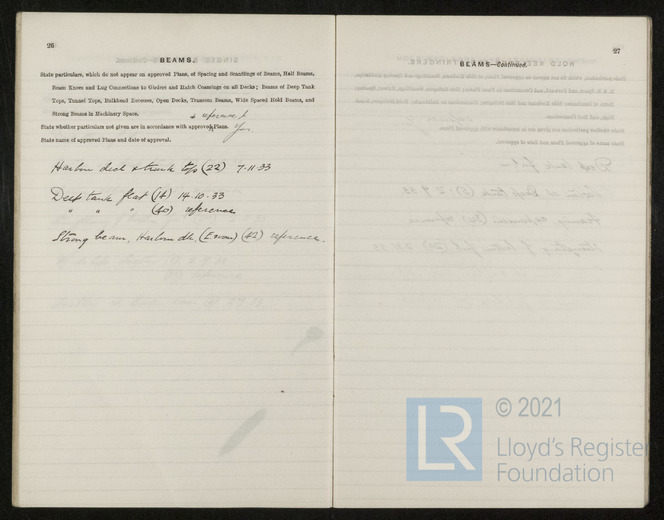 26
BEAMS.
State particulars, which do not appear on approved Plans, of Spacing and Scantlings of Beams, Half Beams,
Beam Knees and Lug Connections to Girders and Hatch Coamings on all Decks; Beams of Deep Tank
Tops, Tunnel Tops, Bulkhead Recesses, Open Decks, Transom Beams, Wide Spaced Hold Beams, and
Strong Beams in Machinery Space.
& reference
State whether particulars not given are in accordance with approved Plans. Yes.
State name of approved Plans and date of approval.
Harbour deck & trunk tops (22) 7.11.33
Deep tank flat (14) 14.10.33
" " " (40) reference
Strong beam, Harbour dk, (42) reference.
27
BEAMS—Continued.
LR
© 2021
Lloyd's Register
Foundation